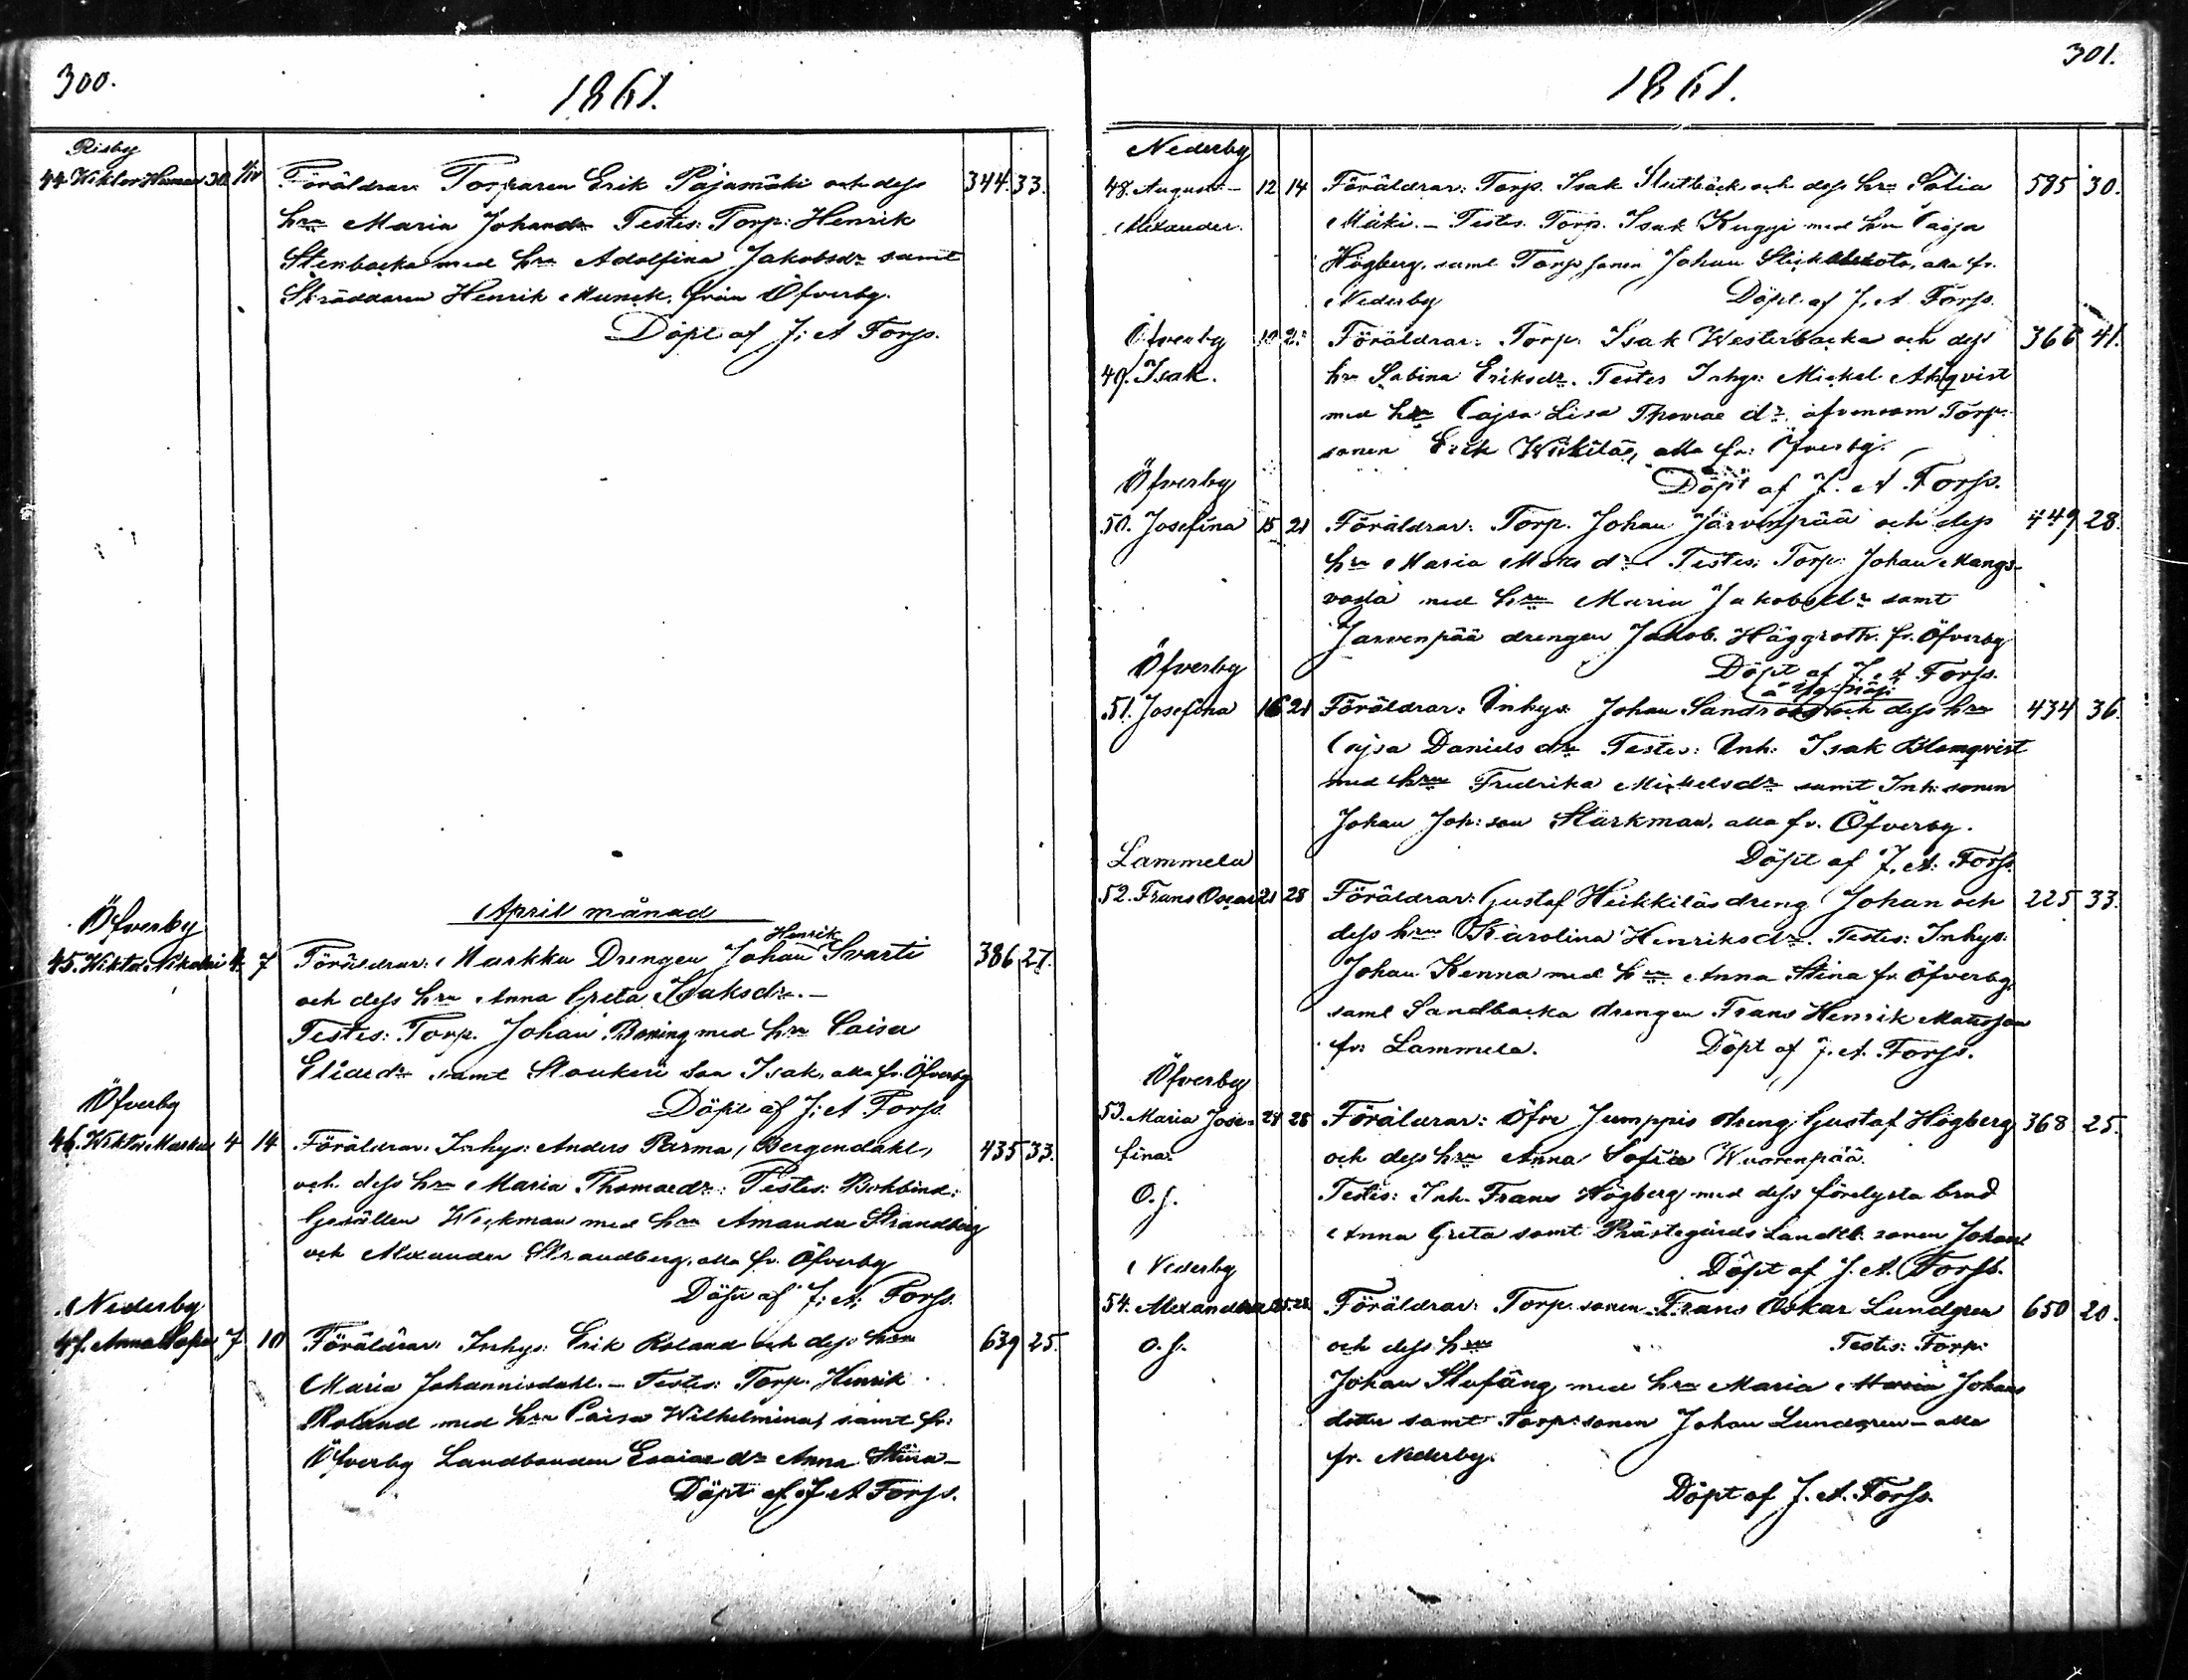 300.
1861.
Risby
44. Wiktor Herman 30. 1/IV Föräldrar: Torparen Erik Pajamäki och dess 344. 33.
hru Maria Johansdr Testes: Torp: Henrik
Stenbacka med hru Adolfina Jakobsdr samt
Skräddaren Henrik Munck, från Öfverby.
Döpt af J: A Forss.
April månad
Öfverby
Henrik
45. Wiktor Nikolai 4. 7 Föräldrar: Markku Drengen Johan Svarti 386 27.
och dess hru Anna Greta Isaksdr. —
Testes: Torp. Johan Boxing med hru Caisa
Eliædr samt Stoukeri son Isak, alla fr. Öfverby
Döpt af J: A Forss.
Öfverby
46. Wiktor Markus 4 14 Föräldrar: Inhys: Anders Perma, (Bergendahl, 435 33.
och dess hru Maria Thomædr: Testes: Bokbind:
Gesällen Wickman med hru Amanda Strandberg
och Alexander Strandberg, alla fr. Öfverby
Döpt af J: A: Forss.
Nederby
47. Anna Sofia 7 10 Föräldrar: Inhys: Erik Roland och dess hru 639 25.
Maria Johannisdahl. — Testes: Torp. Henrik
Roland med hru Caisa Wilhelmina, samt fr:
Öfverby Landbonden Esaiædr Anna Stina —
Döpt af J A Forss.
301.
1861.
Nederby
48. August — 12 14 Föräldrar: Torp. Isak Slutbäck och dess hru Sofia 595 30.
Alexander. Mäki. — Testes. Torp. Isak Kuggi med hru Caisa
Högberg, samt Torp, sonen Johan alla fr.
Nederby Döpt af J. A Forss.
Öfverby 10 21 Föräldrar: Torp. Isak Westerbacka och dess 366 41.
49. Isak. hru Sabina Eriksdr. Testes Inhys: Mickel Ahlqvist
med hru Cajsa Lisa Thomae dr. äfvensom Torp.
sonen Erik Wikiläs, alla fr: Öfverby.
Öfverby Döpt af J. A Forss.
50. Josefina 15 21 Föräldrar: Torp. Johan Järvenpää och dess 449 28.
hru Maria Mats dr Testes: Torp: Johan Mangs-
voda med hru Maria Jakobsdr samt
Jarvenpää drengen Jakob. Häggroth. fr. Öfverby
Öfverby Döpt af J. A Forss.
51. Josefina 16 21 Föräldrar: Inhys: Johan Sandroos och dess hru 434 36.
Cajsa Daniels dr Testes: Inh: Isak Blomqvist
med hru Fredrika Mickelsdr samt Inh: sonen
Johan Joh: son Starkman, alla fr. Öfverby.
Lammela Döpt af J. A: Forss.
52. Frans Oscar 21 28 Föräldrar: Gustaf Heikkiläs dreng Johan och 225 33.
dess hru Karolina Henriksdr. Testes: Inhys:
Johan Kenna med hru Anna Stina fr. Öfverby,
samt Sandbacka drengen Frans Henrik Matsson
fr: Lammela. Döpt af J. A. Forss.
Öfverby
53. Maria Jose- 24 28 Föräldrar: Öfre Jumppis dreng Gustaf Högberg 368 25.
fina. och dess hru Anna Sofia Wuorenpää.
O. J. Testes: Inh. Frans Högberg med dess förelysta brud
Anna Greta samt Prästegårds Landtb. sonen Johan
Nederby Döpt af J. A. Forss.
54. Alexandra 25. 28 Föräldrar: Torp. sonen Frans Oskar Lundgren 650 20.
O. J. och dess hru Testes: Torp:
Johan Slufäng med hru Maria Maria Johans
dotter samt Torp: sonen Johan Lundgren — alla
fr. Nederby.
Döpt af J. A. Forss.